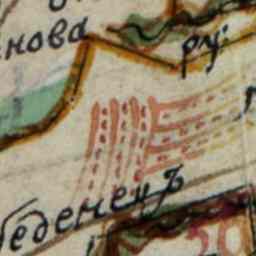 нова
ру:
беденецъ
50